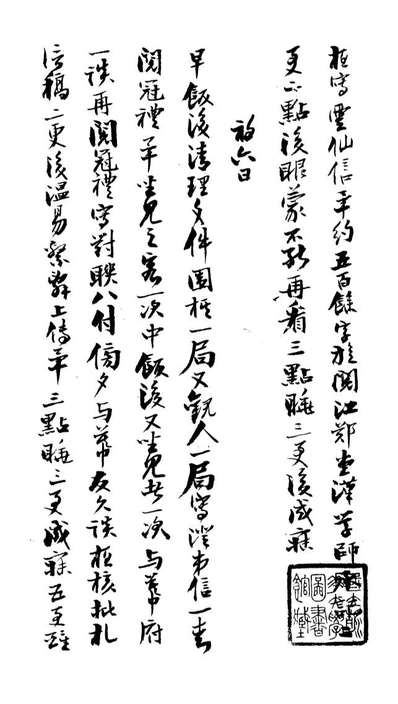 夜寫雲仙信畢約五百餘字旋閱江鄭堂漢學師
更二點後眼蒙不能再看三點睡三更後成寐
初六日
早飯後清理文件圍棋一局又觀人一局寫澄弟信一封
閱冠禮畢坐見之客一次中飯後又坐見者一次與幕府
一談再閱冠禮寫對聯八付傍夕與幕友久談夜核批札
信稿二更後溫易繫辭上傳畢三點睡三更成寐五更醒